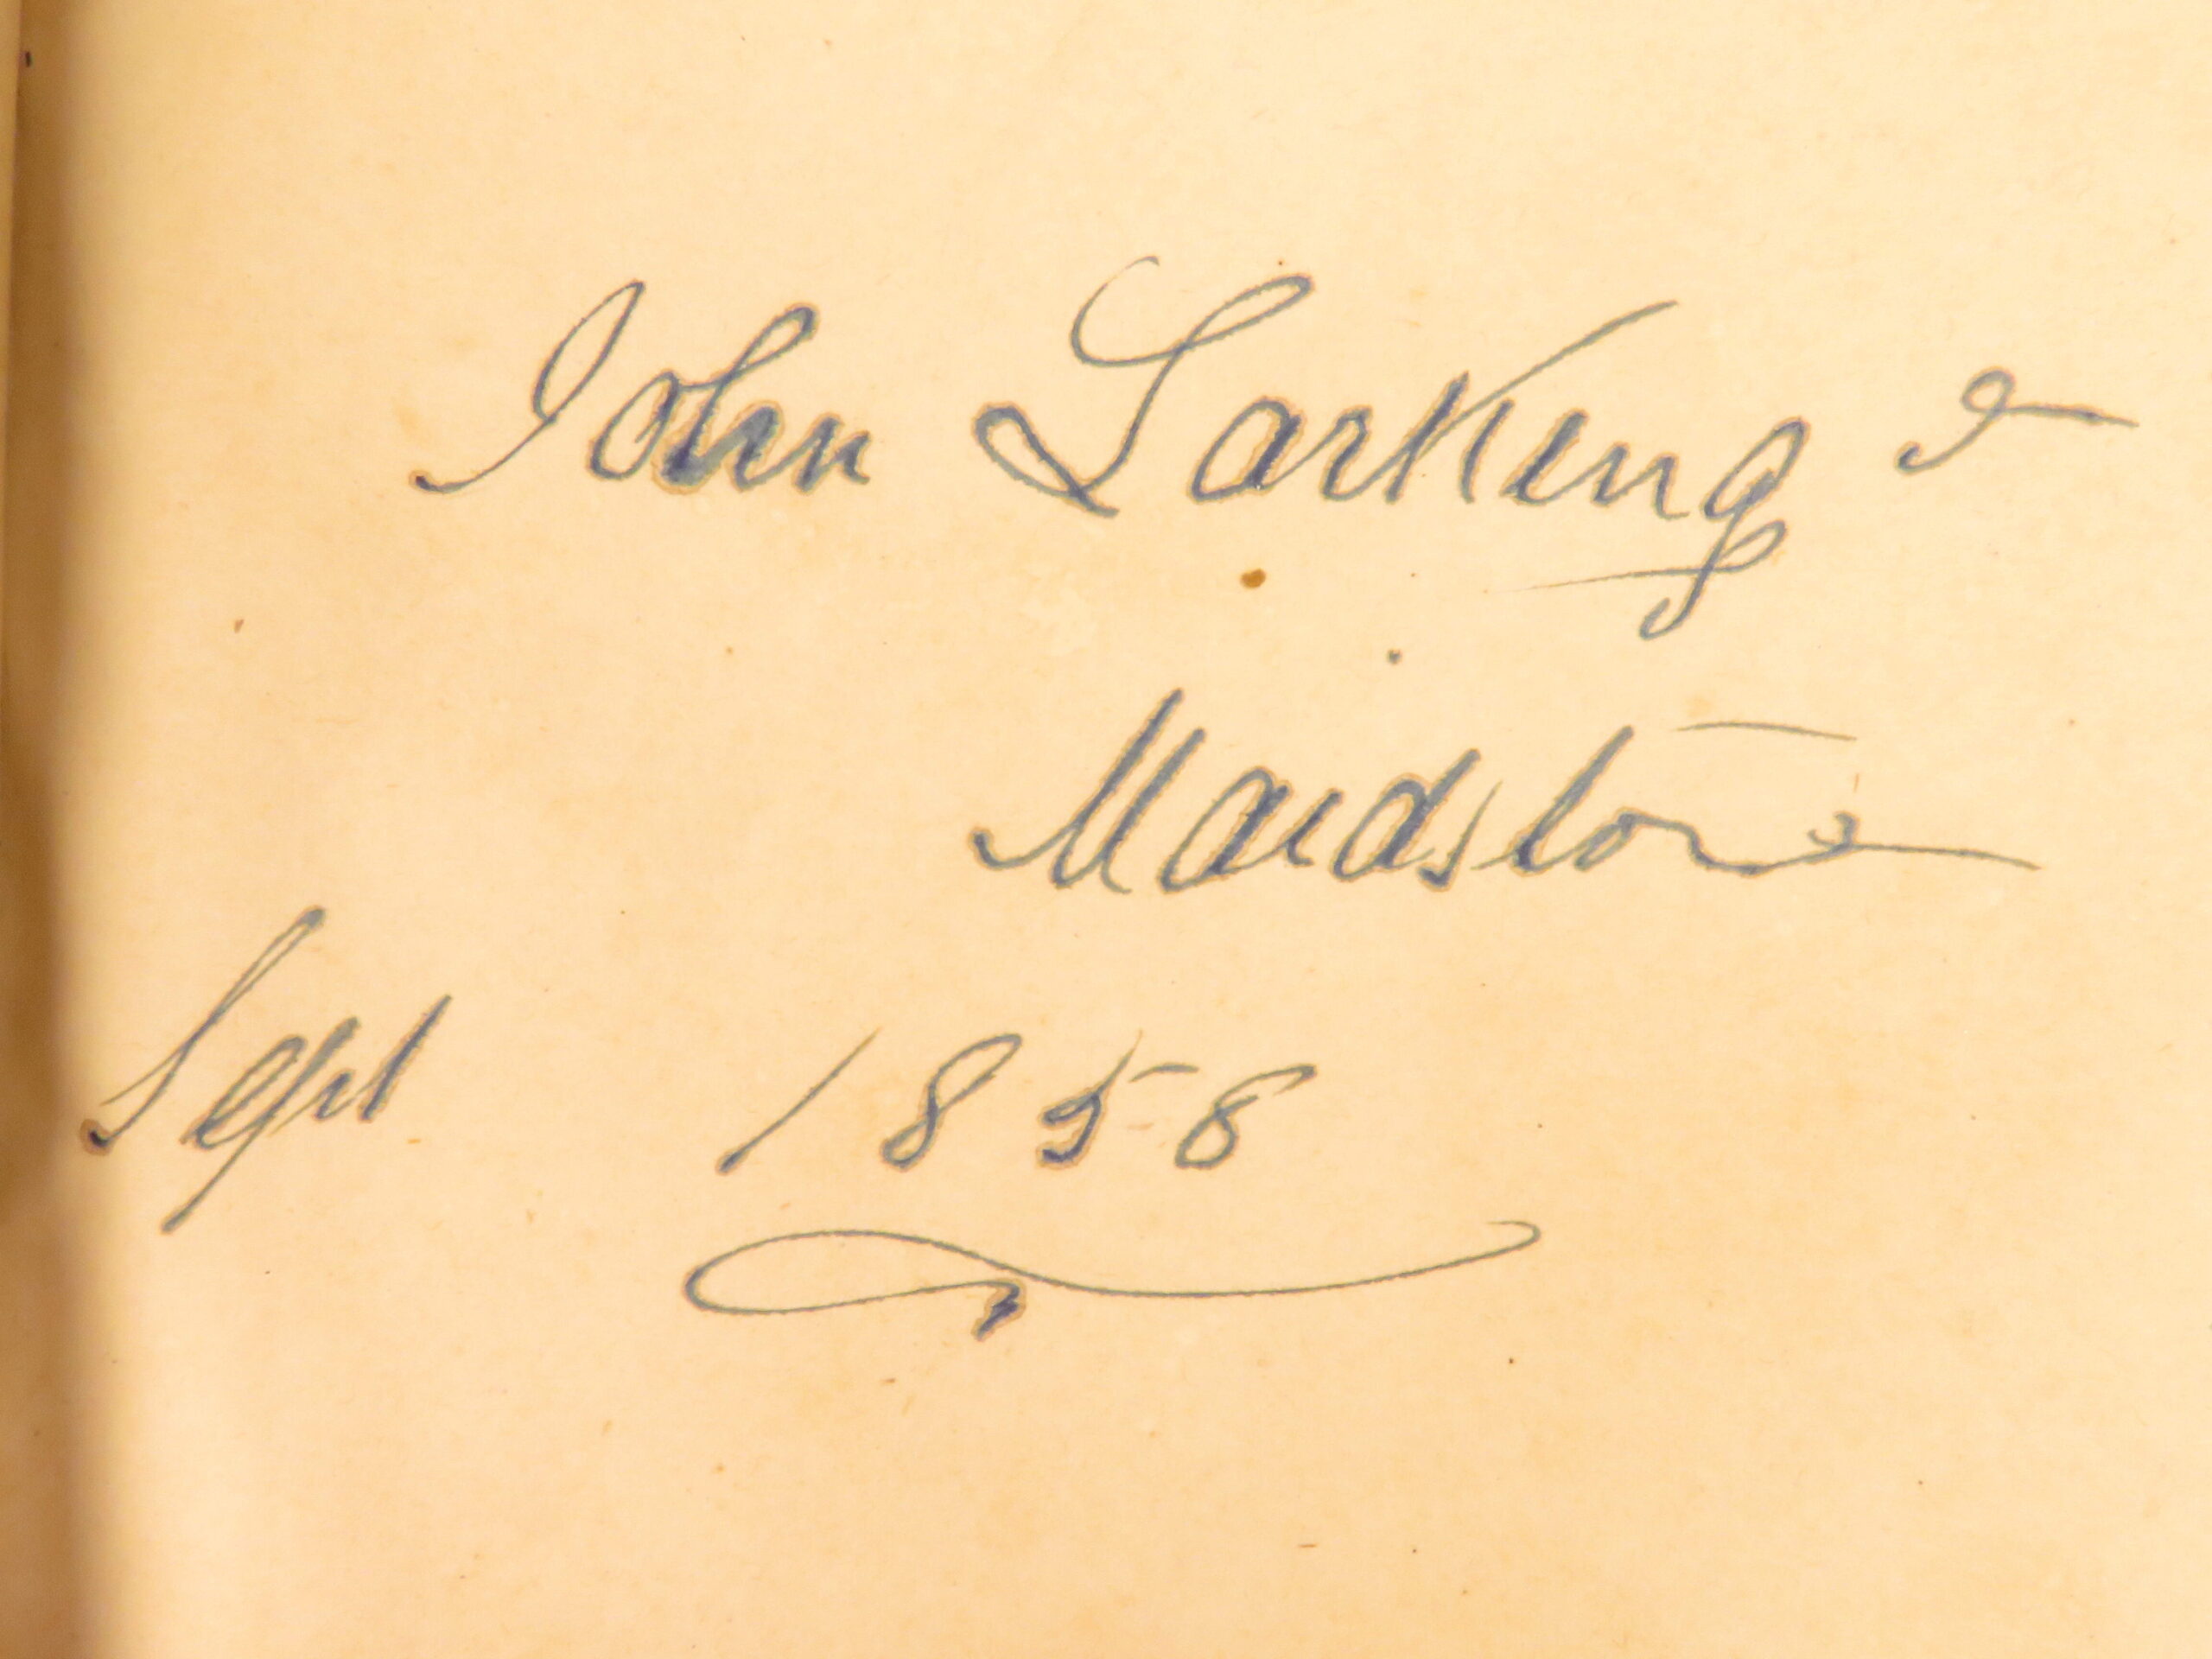 John Larking
Maidstone
Sept 1858